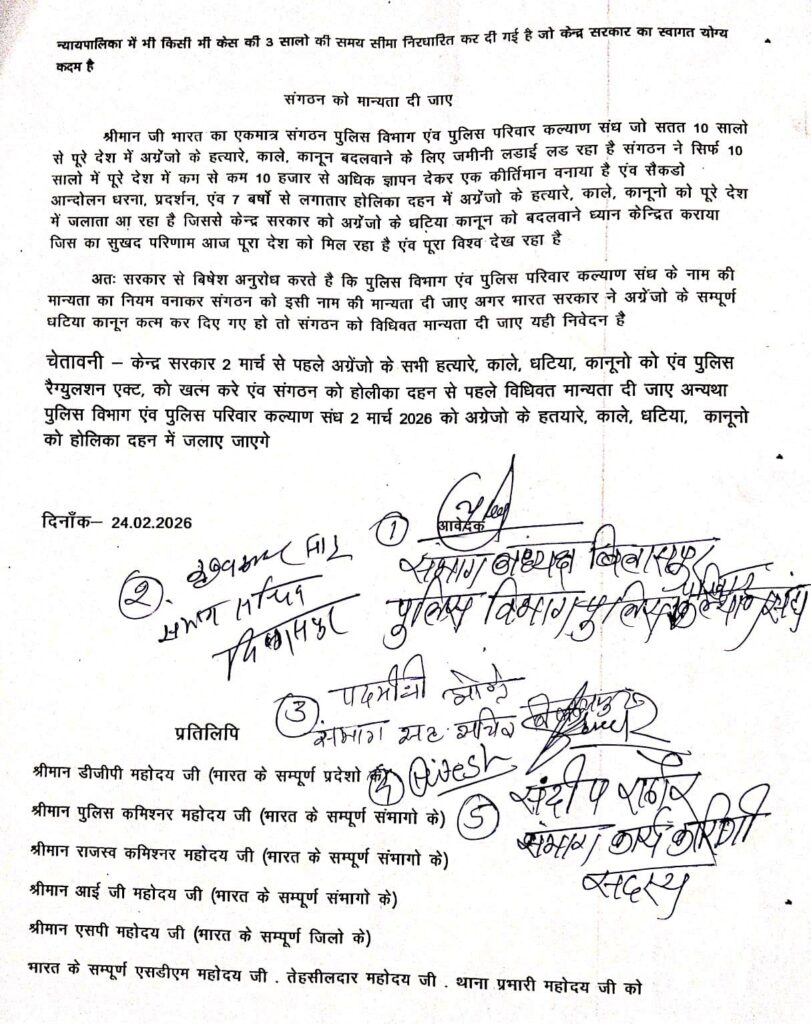 न्यायपालिका में भी किसी भी केस की 3 सालो की समय सीमा निरधारित कर दी गई है जो केन्द्र सरकार का स्वागत योग्य
कदम है
संगठन को मान्यता दी जाए
श्रीमान जी भारत का एकमात्र संगठन पुलिस विभाग एंव पुलिस परिवार कल्याण संध जो सतत 10 सालो
से पूरे देश में अग्रेंजो के हत्यारे, काले, कानून बदलवाने के लिए जमीनी लडाई लड रहा है संगठन ने सिर्फ 10
सालो में पूरे देश में कम से कम 10 हजार से अधिक ज्ञापन देकर एक कीर्तिमान वनाया है एंव सैकडो
आन्दोलन धरना, प्रदर्शन, एंव 7 बर्षो से लगातार होलिका दहन में अग्रेंजो के हत्यारे, काले, कानूनो को पूरे देश
में जलाता आ रहा है जिससे केन्द्र सरकार को अग्रेंजो के धटिया कानून को बदलवाने ध्यान केन्द्रित कराया
जिस का सुखद परिणाम आज पूरा देश को मिल रहा है एंव पूरा विश्व देख रहा है
अतः सरकार से बिषेश अनुरोध करते है कि पुलिस विभाग एंव पुलिस परिवार कल्याण संध के नाम की
मान्यता का नियम वनाकर संगठन को इसी नाम की मान्यता दी जाए अगर भारत सरकार ने अग्रेंजो के सम्पूर्ण
धटिया कानून कत्म कर दिए गए हो तो संगठन को विधिवत मान्यता दी जाए यही निवेदन है
चेतावनी – केन्द्र सरकार 2 मार्च से पहले अग्रेंजो के सभी हत्यारे, काले, धटिया, कानूनो को एंव पुलिस
रैग्युलशन एक्ट, को खत्म करे एंव संगठन को होलीका दहन से पहले विधिवत मान्यता दी जाए अन्यथा
पुलिस विभाग एंव पुलिस परिवार कल्याण संध 2 मार्च 2026 को अग्रेजो के हतयारे, काले, धटिया, कानूनो
को होलिका दहन में जलाए जाएगे
दिनाँक– 24.02.2026
① आवेदक
संभाग अध्यक्ष बिलासपुर
पुलिस विभाग पुलिस परिवार कल्याण संघ
②
संभाग सचिव
बिलासपुर
③ पदमीनी
संभाग सह सचिव बिलासपुर
प्रतिलिपि
श्रीमान डीजीपी महोदय जी (भारत के सम्पूर्ण प्रदेशो के)
④ Hitesh
श्रीमान पुलिस कमिश्नर महोदय जी (भारत के सम्पूर्ण संभागो के)
⑤ संदीप राठौर
संभाग कार्य कारिणी
सदस्य
श्रीमान राजस्व कमिश्नर महोदय जी (भारत के सम्पूर्ण संभागो के)
श्रीमान आई जी महोदय जी (भारत के सम्पूर्ण संभागो के)
श्रीमान एसपी महोदय जी (भारत के सम्पूर्ण जिलो के)
भारत के सम्पूर्ण एसडीएम महोदय जी . तेहसीलदार महोदय जी . थाना प्रभारी महोदय जी को